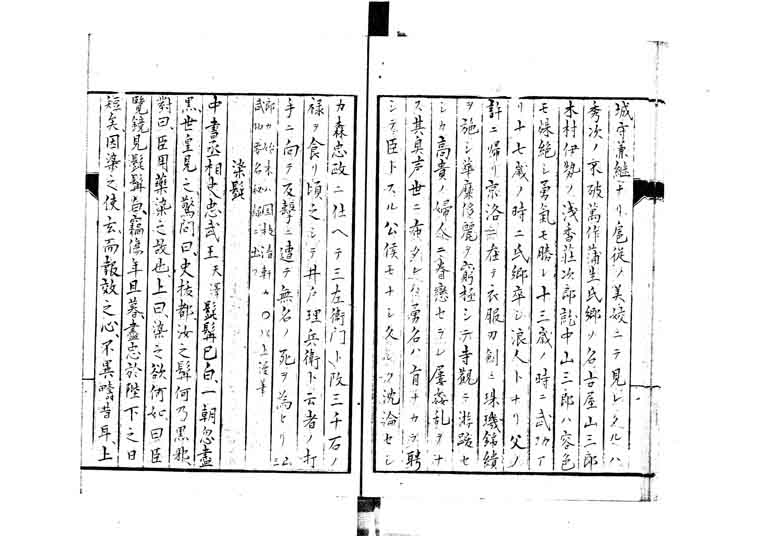 城守兼継ナリ扈従ノ美姣ニテ見レクルハ
秀次ノ不破萬作蒲生氏郷ノ名古屋山三郎
木村伊勢ノ浅香荘次郎訖中山三郎ハ容色
モ殊絶シ勇氣モ勝レ十三歳ノ時ニ武功ア
リ十七歳ノ時ニ氏郷卒シ浪人トナリ父ノ
許ニ帰リ京洛ニ在テ衣服刀剣ニ珠璣錦繍
ヲ施シ華麋侈麗ヲ窮極シテ寺觀ニ游跋セ
シカ高貴ノ婦人ニ眷戀セラレ屡姦乱ヲナ
ス其臭声世ニ布タレ𪜈勇名ハ有ナカラ聘
シテ臣トスル公侯モナシ久シク沈淪セシ
カ森忠政ニ仕ヘテ三左衛門ト改三千石ノ
禄ヲ食リ頃之シテ井戸理兵衛ト云者ノ打
手ニ向テ反擊ニ遭テ無名ノ死ヲ為セリ山三
郎カ始末ハ国枝清軒
武功 名秘録ニ出ツ 〇以上漫筆
染髭
中書丞相史忠武王天澤髭髯已白一朝忽盡
黒世皇見之驚問曰史核都汝之髯何乃黒邪
對曰臣用藥染之故也上曰染之欲何如曰臣
覧鏡見髭髯白竊傷年且暮盡忠於陛下之日
短矣因染之使玄而報效之心不異疇昔耳上